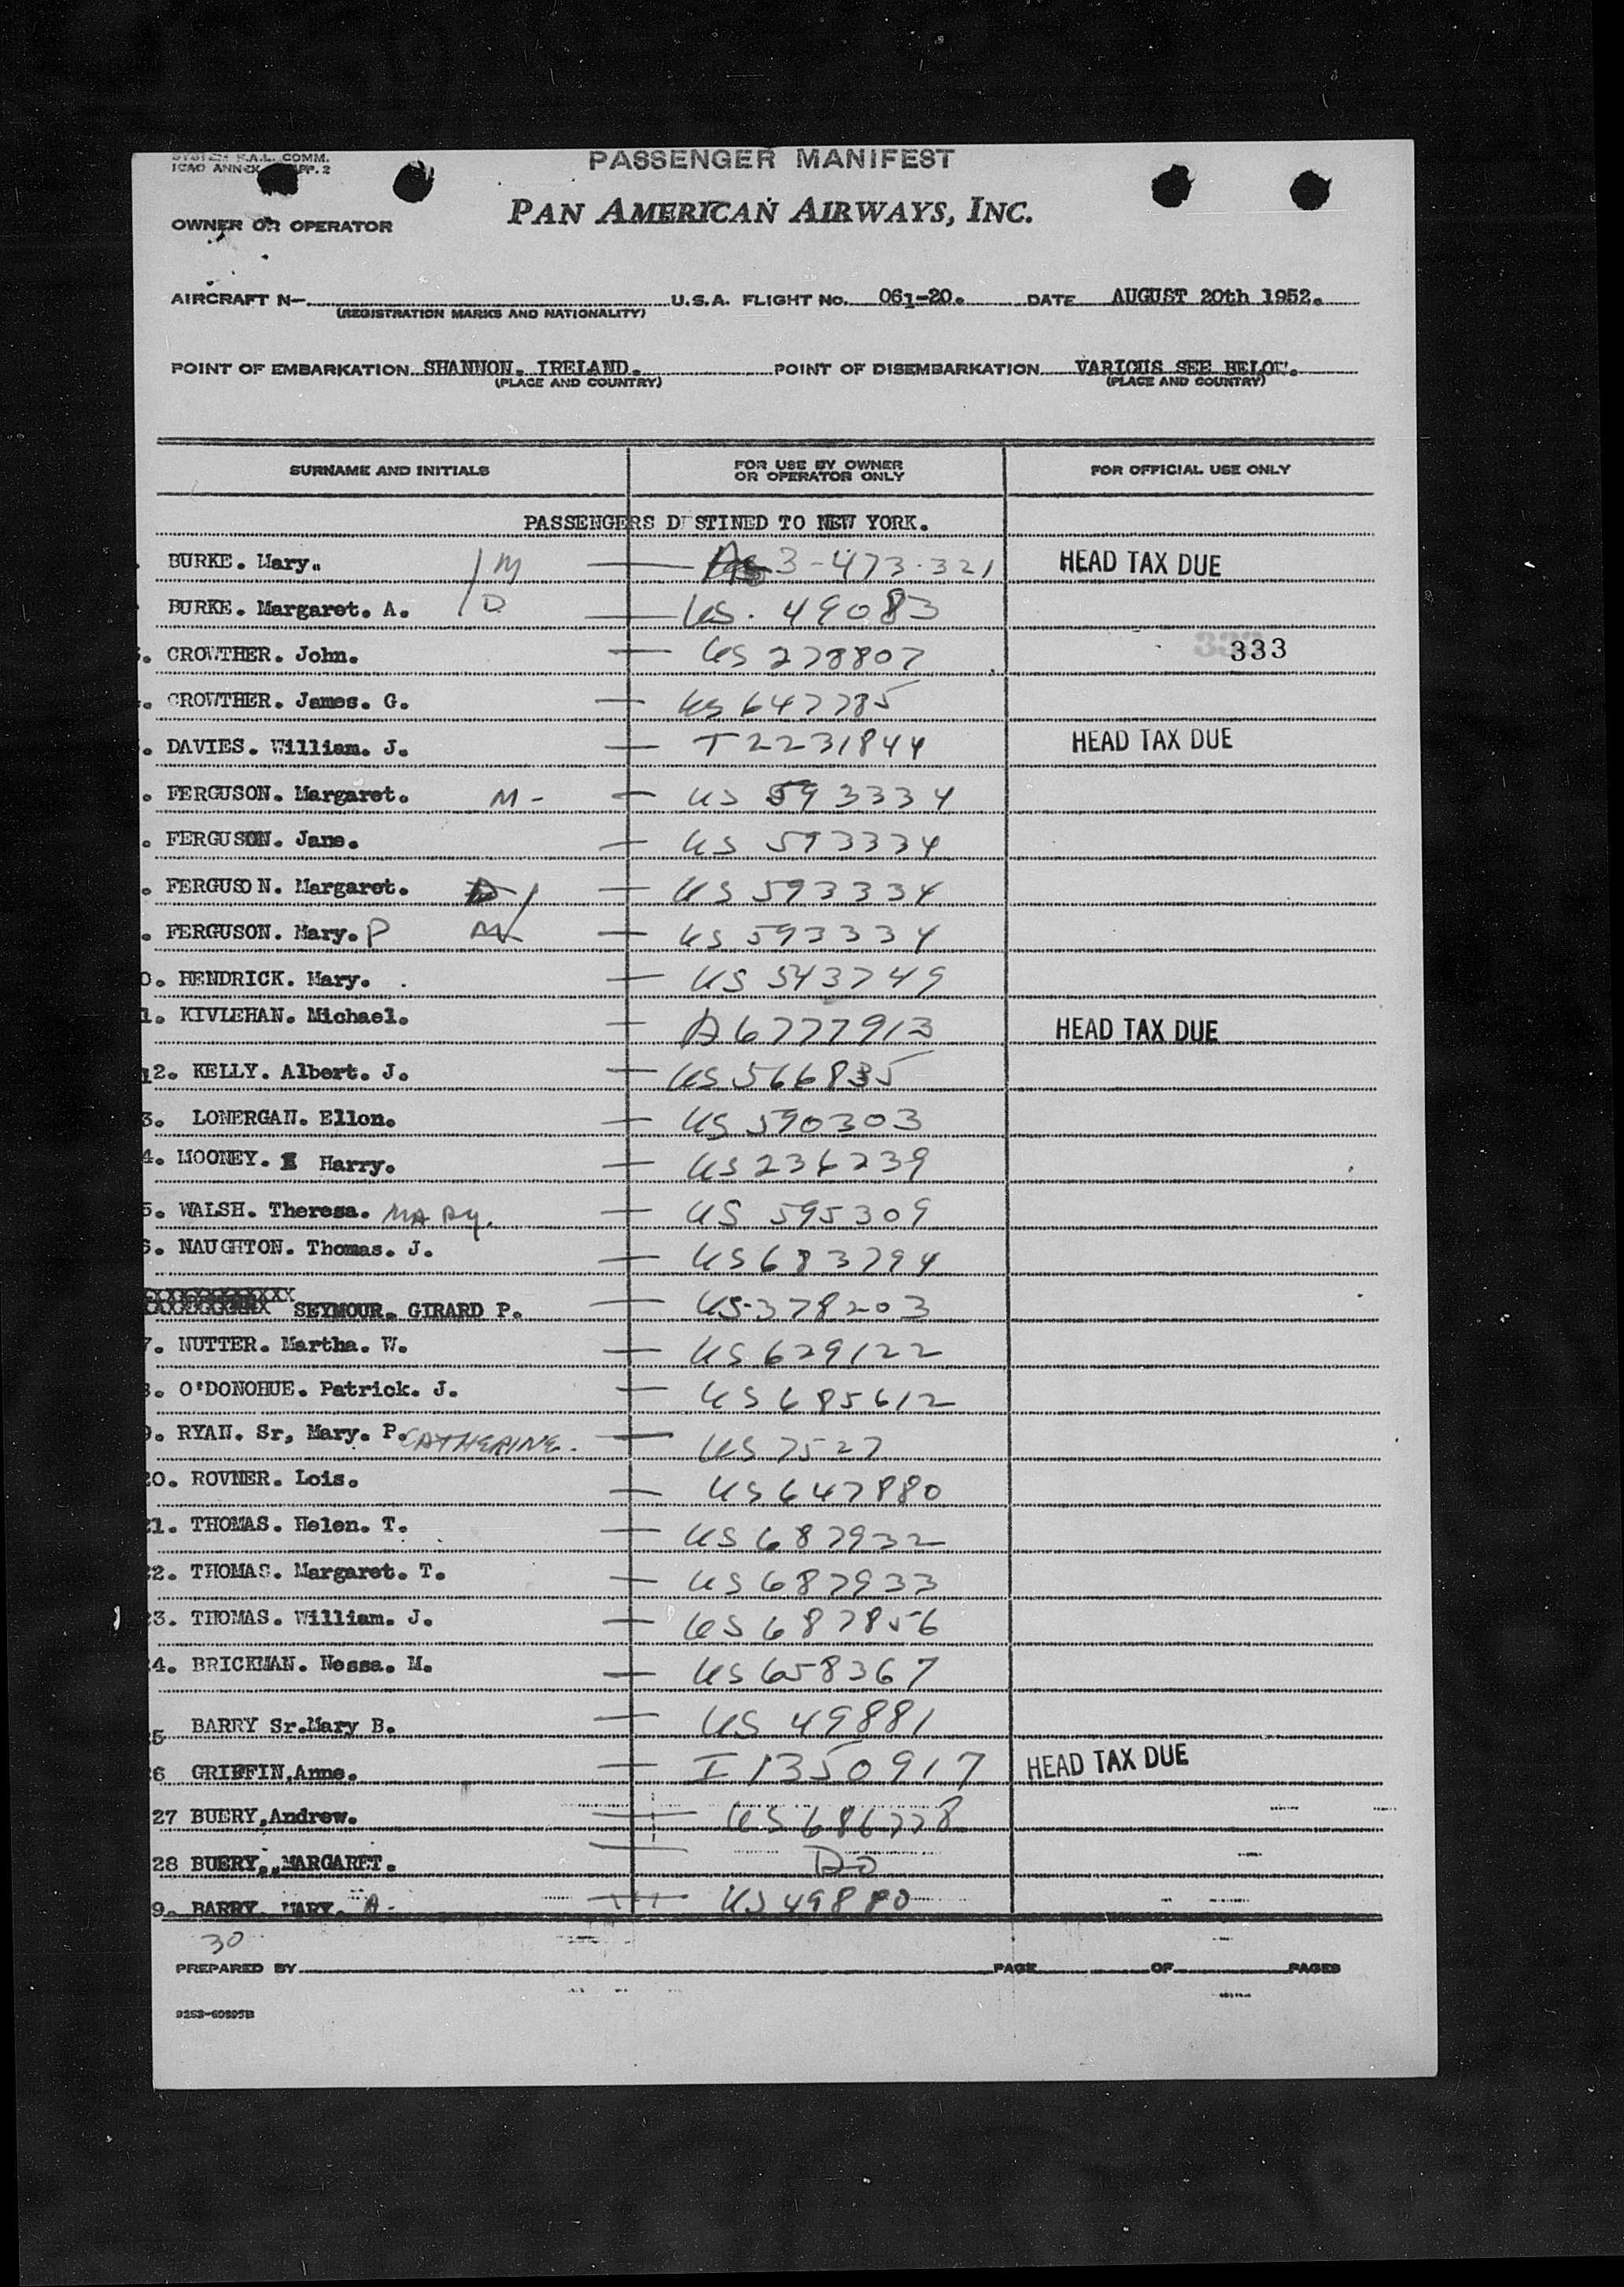 SYSTEM F.A.L. COMM. PASSENGER MANIFEST
ICAO ANNEX APP. 2
OWNER OR OPERATOR PAN AMERICAN AIRWAYS, INC.
AIRCRAFT N- U.S.A. FLIGHT NO. 061-20. DATE AUGUST 20th 1952.
(REGISTRATION MARKS AND NATIONALITY)
POINT OF EMBARKATION SHANNON. IRELAND. POINT OF DISEMBARKATION VARIOUS SEE BELOW.
(PLACE AND COUNTRY) (PLACE AND COUNTRY)
SURNAME AND INITIALS FOR USE BY OWNER OR OPERATOR ONLY FOR OFFICIAL USE ONLY
PASSENGERS DESTINED TO NEW YORK.
BURKE. Mary. M 3-473.321 HEAD TAX DUE
BURKE. Margaret. A. D US. 49083
. CROWTHER. John. US 278807 333
. CROWTHER. James. G. US 647785
. DAVIES. William. J. T2231844 HEAD TAX DUE
. FERGUSON. Margaret. M- US 593334
. FERGUSON. Jane. US 593334
. FERGUSON. Margaret. D US 593334
. FERGUSON. Mary. P M US 593334
0. HENDRICK. Mary. US 543749
1. KIVLEHAN. Michael. A6777913 HEAD TAX DUE
12. KELLY. Albert. J. US 566835
3. LONERGAN. Ellen. US 590303
4. MOONEY. Harry. US 236239
5. WALSH. Theresa. MARY. US 595309
6. NAUGHTON. Thomas. J. US 683794
SEYMOUR. GIRARD P. US-378203
7. NUTTER. Martha. W. US 629122
8. O'DONOHUE. Patrick. J. US 685612
9. RYAN. Sr, Mary. P. CATHERINE. US 7527
20. ROVNER. Lois. US 647880
21. THOMAS. Helen. T. US 687932
22. THOMAS. Margaret. T. US 687933
23. THOMAS. William. J. US 687856
24. BRICKMAN. Nessa. M. US 658367
25 BARRY Sr.Mary B. US 49881
26 GRIFFIN,Anne. I 1350917 HEAD TAX DUE
27 BUERY,Andrew. US 686778
28 BUERY,,MARGARET. DO
9. BARRY. MARY. A- US 49880
30
PREPARED BY PAGE OF PAGES